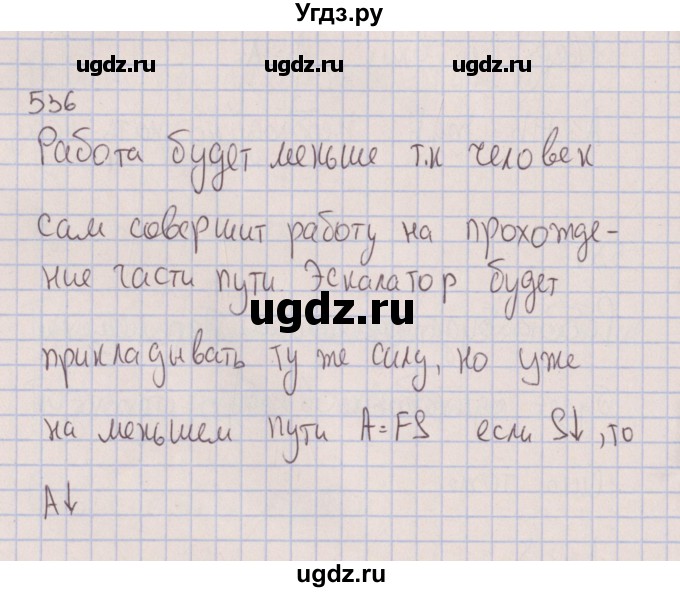 Угдз.ру
ugdz.ru ugdz.ru
536
Работа будет меньше т.к человек
сам совершит работу на прохожде-
ние части пути. Эскалатор будет
ugdz.ru
прикладывать ту же силу, но уже
на меньшем пути A=FS если S↓, то
A↓
ugdz.ru